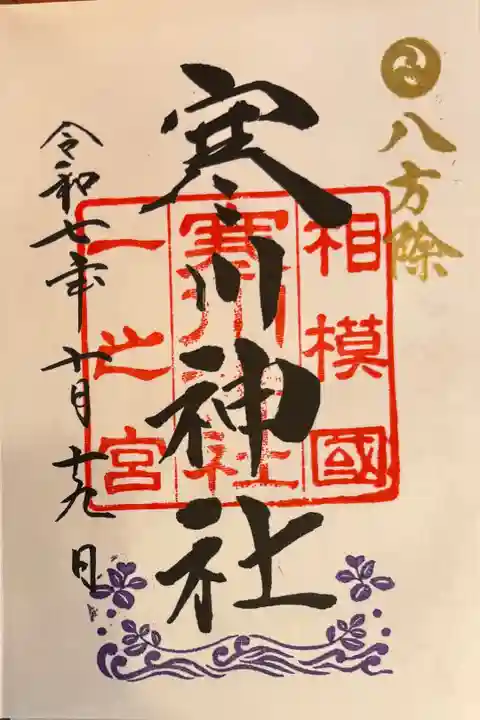 八方除
寒川神社
相模國
寒川神社
一之宮
令和七年十月十九日